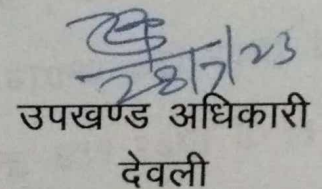 28/7/23
उपखण्ड अधिकारी
देवली